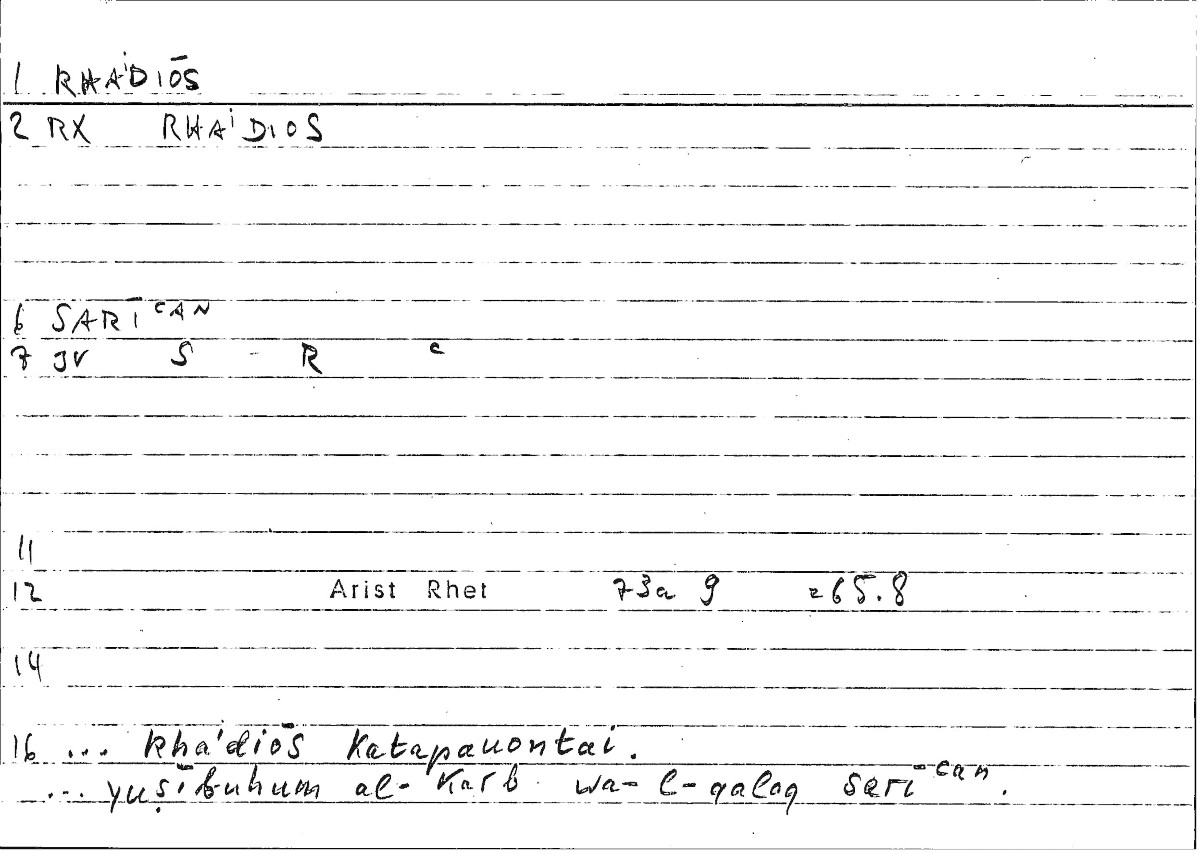 1 RHAⁱDIŌS
2 RX RHAⁱDIOS
6 SARĪᶜAN
7 JV S - R ᶜ
11
12 Arist Rhet 73a 9 265.8
14
16 ... rhaⁱdiōs katapauontai.
... yuṣībuhum al-karb wa-l-qalaq sarīᶜan.